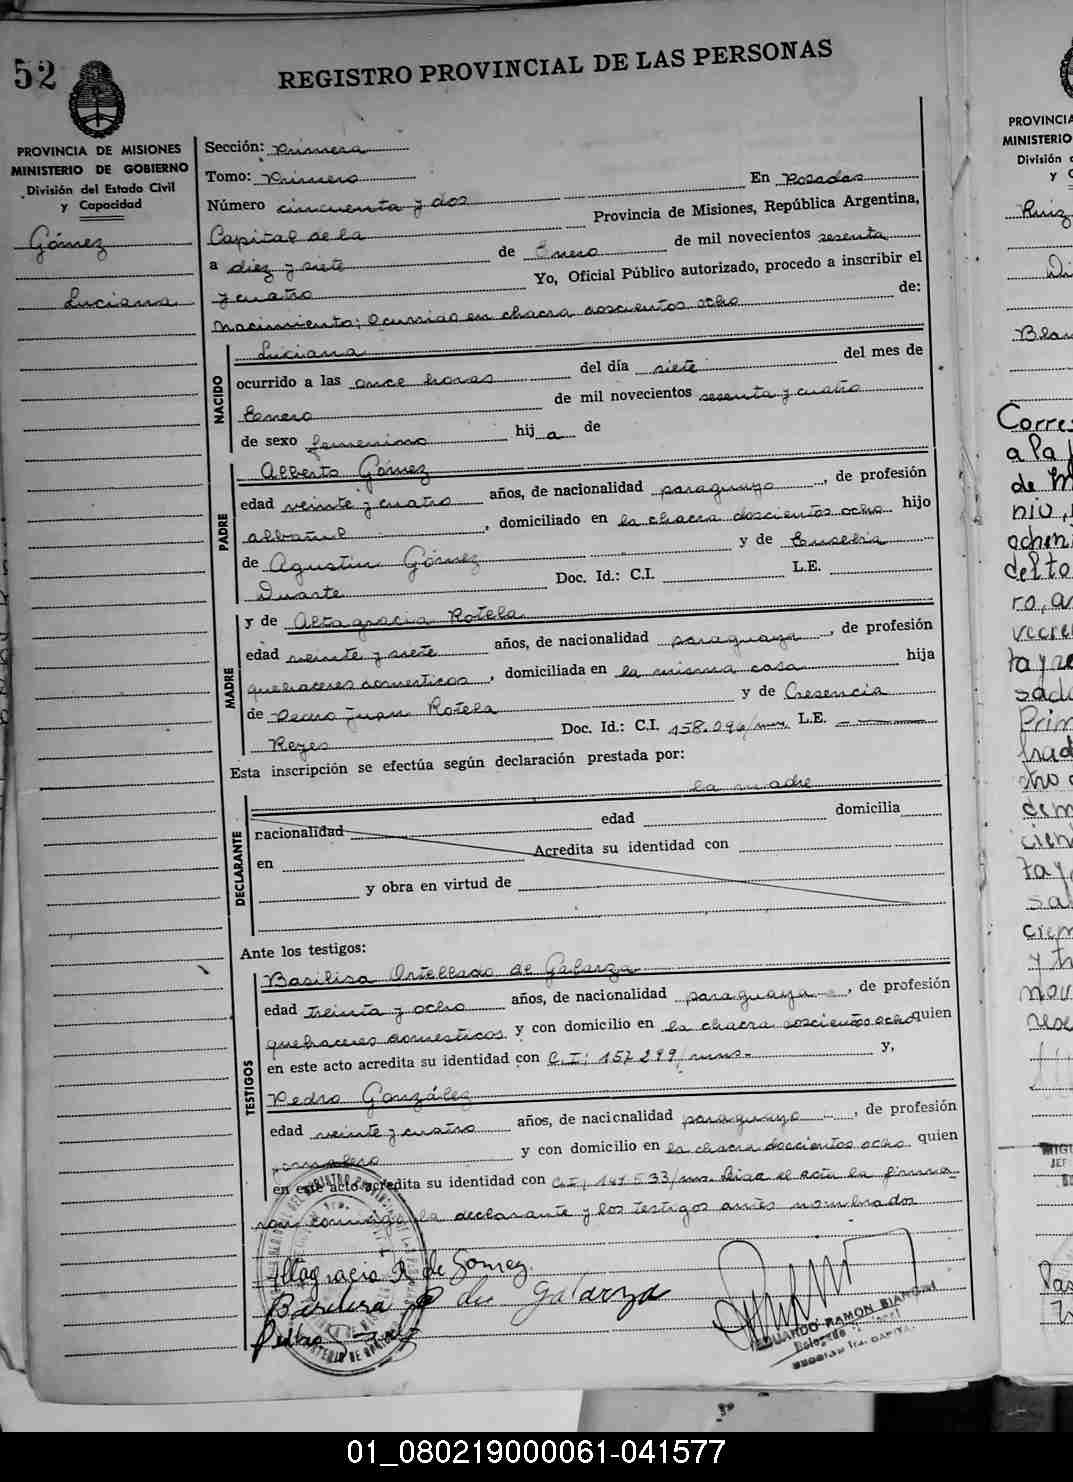 52
REGISTRO PROVINCIAL DE LAS PERSONAS
PROVINCIA DE MISIONES
MINISTERIO DE GOBIERNO
División del Estado Civil
y Capacidad
Gómez
Luciana
Sección: Primera
Tomo: Primero
En Posadas
Número cincuenta y dos
Capital de la Provincia de Misiones, República Argentina,
a diez y siete de Enero de mil novecientos sesenta
y cuatro Yo, Oficial Público autorizado, procedo a inscribir el
Nacimiento; Ocurrido en chacra doscientos ocho de:
NACIDO
Luciana
ocurrido a las once horas del día siete del mes de
Enero de mil novecientos sesenta y cuatro
de sexo femenino hij a de
PADRE
Alberto Gómez
edad veinte y cuatro años, de nacionalidad paraguayo, de profesión
albañil, domiciliado en la chacra doscientos ocho hijo
de Agustín Gómez y de Eusebia
Duarte Doc. Id.: C.I. L.E.
MADRE
y de Altagracia Rotela
edad veinte y siete años, de nacionalidad paraguaya, de profesión
quehaceres domesticos, domiciliada en la misma casa hija
de Pedro Juan Rotela y de Cresencia
Reyes Doc. Id.: C.I. 158.296/mns. L.E.
Esta inscripción se efectúa según declaración prestada por:
la madre
DECLARANTE
nacionalidad edad domicilia
en Acredita su identidad con
y obra en virtud de
Ante los testigos:
TESTIGOS
Basilisa Ortellado de Galarza
edad treinta y ocho años, de nacionalidad paraguaya, de profesión
quehaceres domesticos y con domicilio en la chacra doscientos ocho quien
en este acto acredita su identidad con C.I; 157299/mns.- y,
Pedro González
edad veinte y cuatro años, de nacionalidad paraguayo, de profesión
jornalero y con domicilio en la chacra doscientos ocho quien
en este acto acredita su identidad con C.I; 141533/mns. Leída el acta la firma-
ron, conmigo, la declarante y los testigos antes nombrados
Altagracia R. de Gomez
Basilisa O de Galarza
Pedro
EDUARDO RAMON BIANCHI
PROVINCIA
MINISTERIO
División
y C
Ruiz
Di
Corre
a la
de
nio,
ochen
del to
ro, a
ta y
sado
Prim
cien
ta y
sa
cien
y tr
nov
01_080219000061-041577